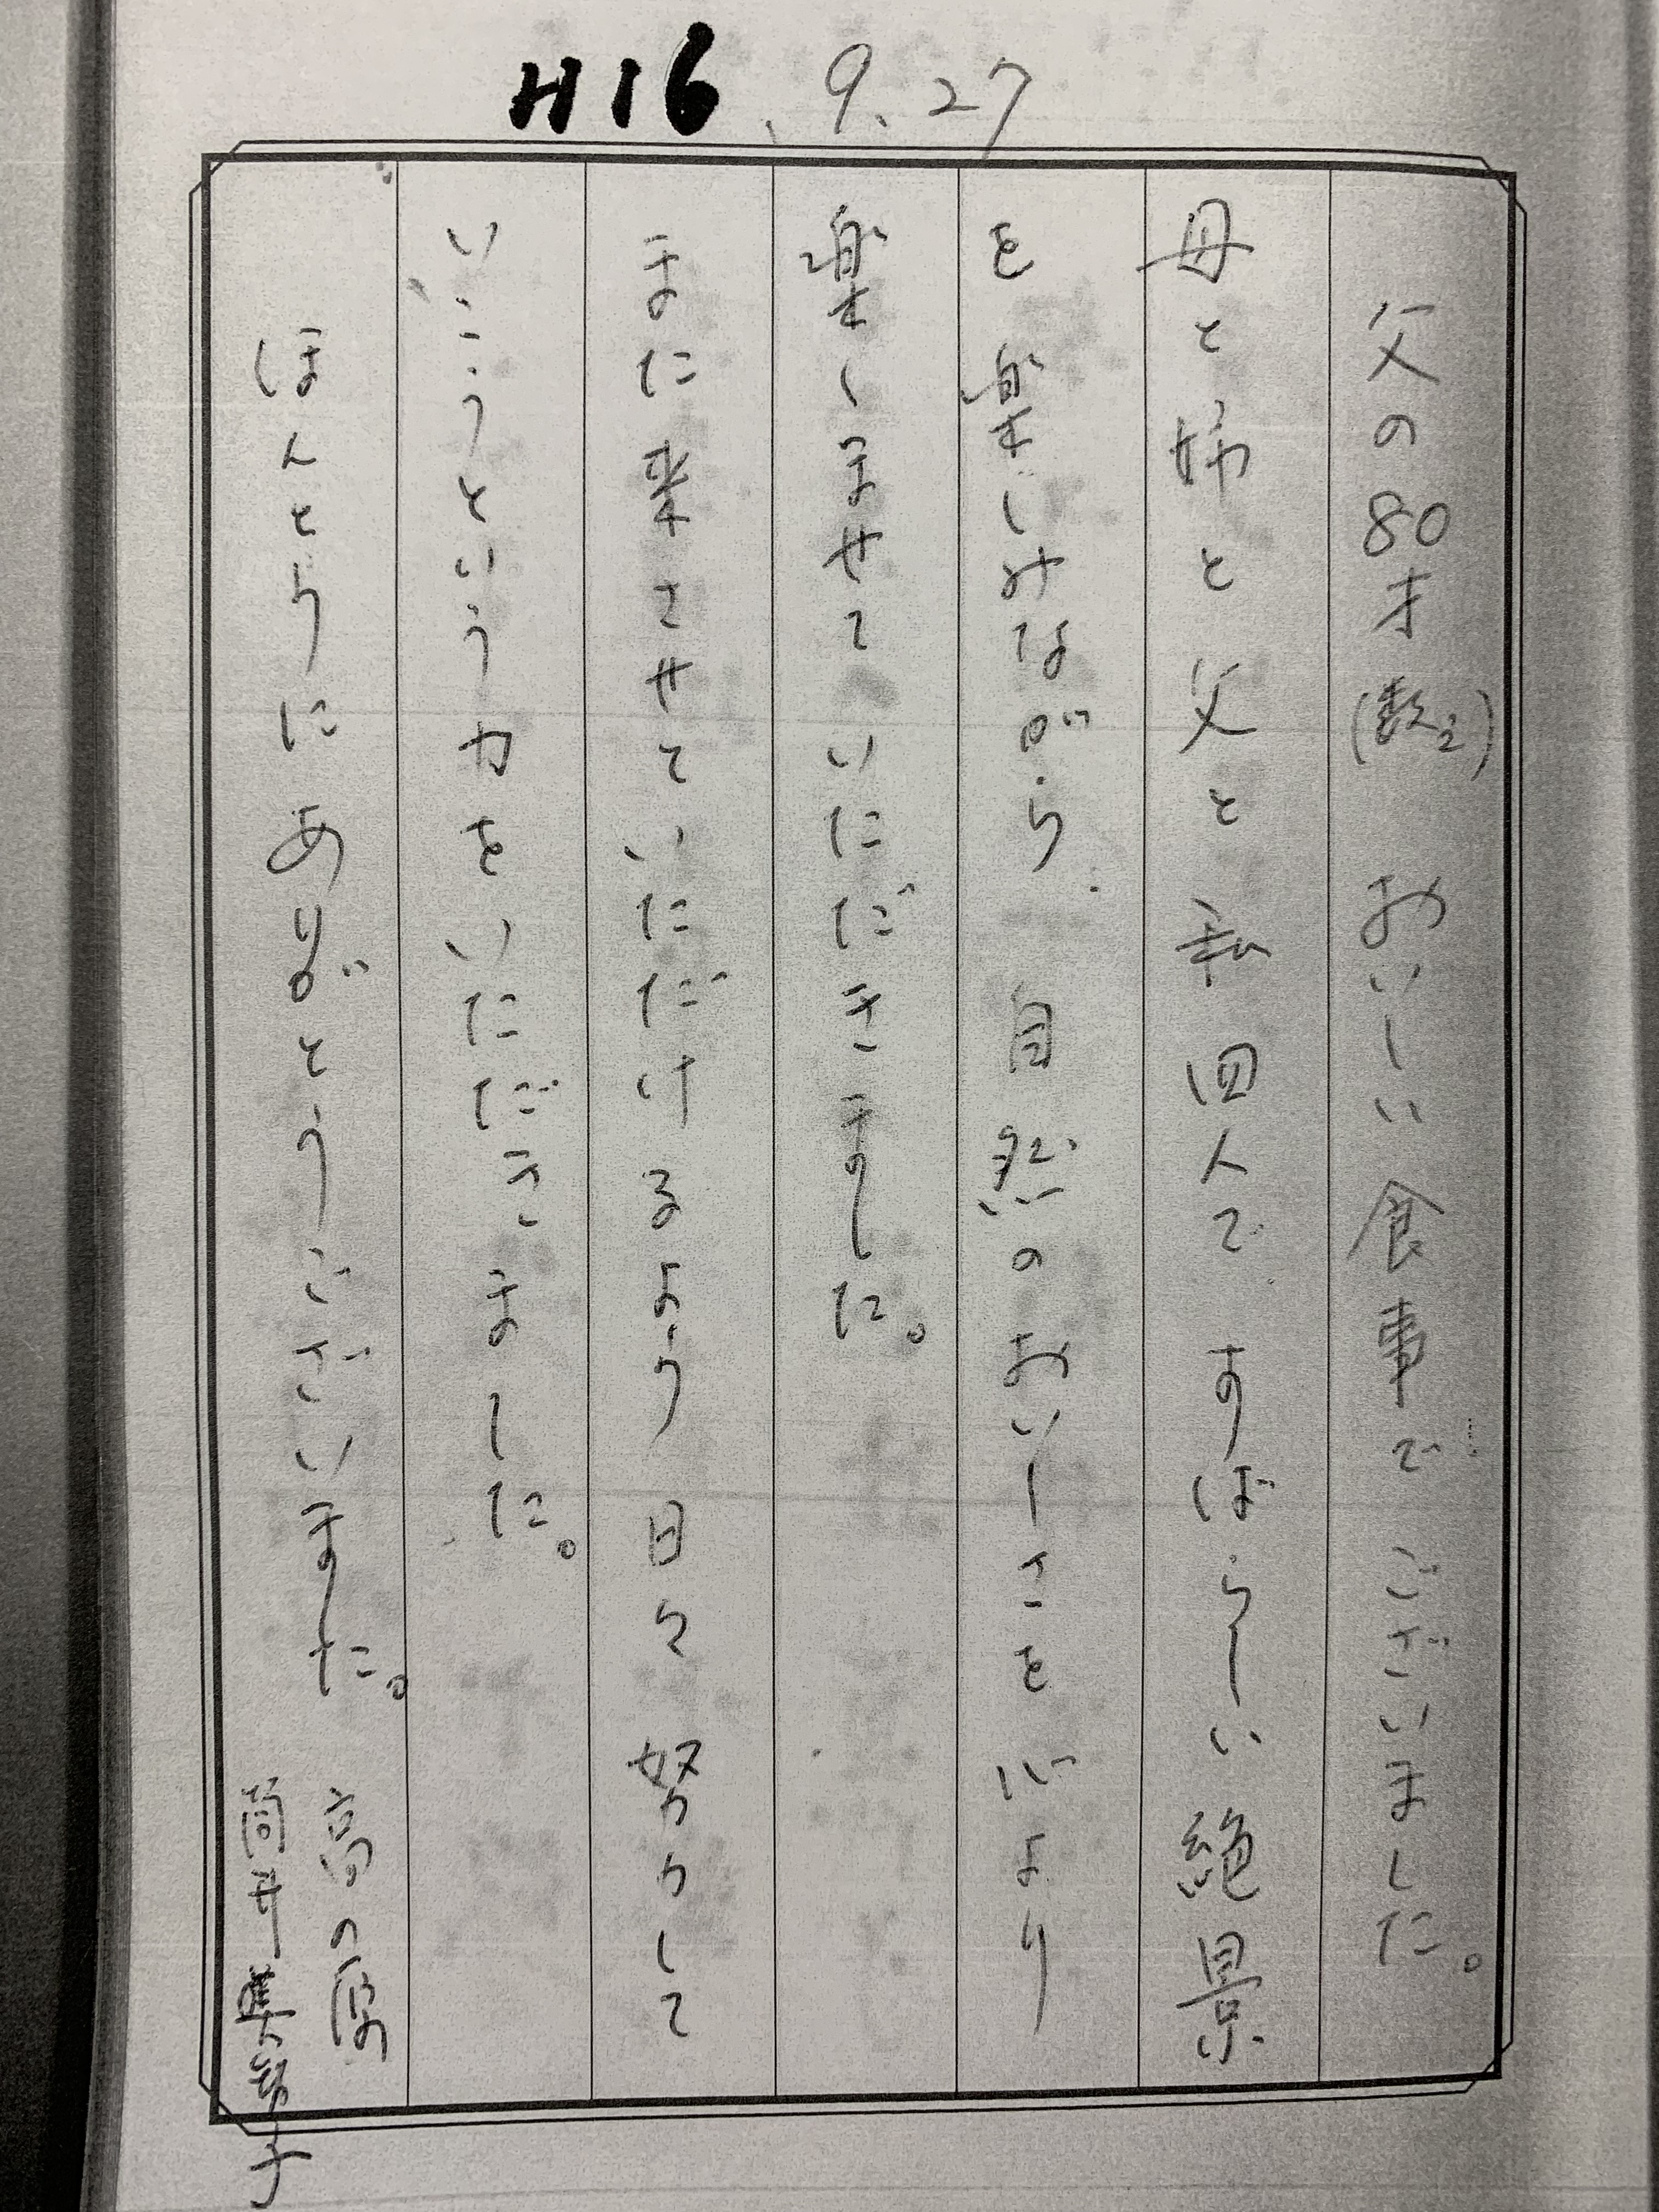 H16.9.27
父の80才(数え) おいしい食事でございました。
母と姉と父と私四人で すばらしい絶景
を楽しみながら 自然のおいしさを心より
楽しませていただきました。
また来させていただけるよう 日々 努力して
いこうという力をいただきました。
ほんとうにありがとうございました。